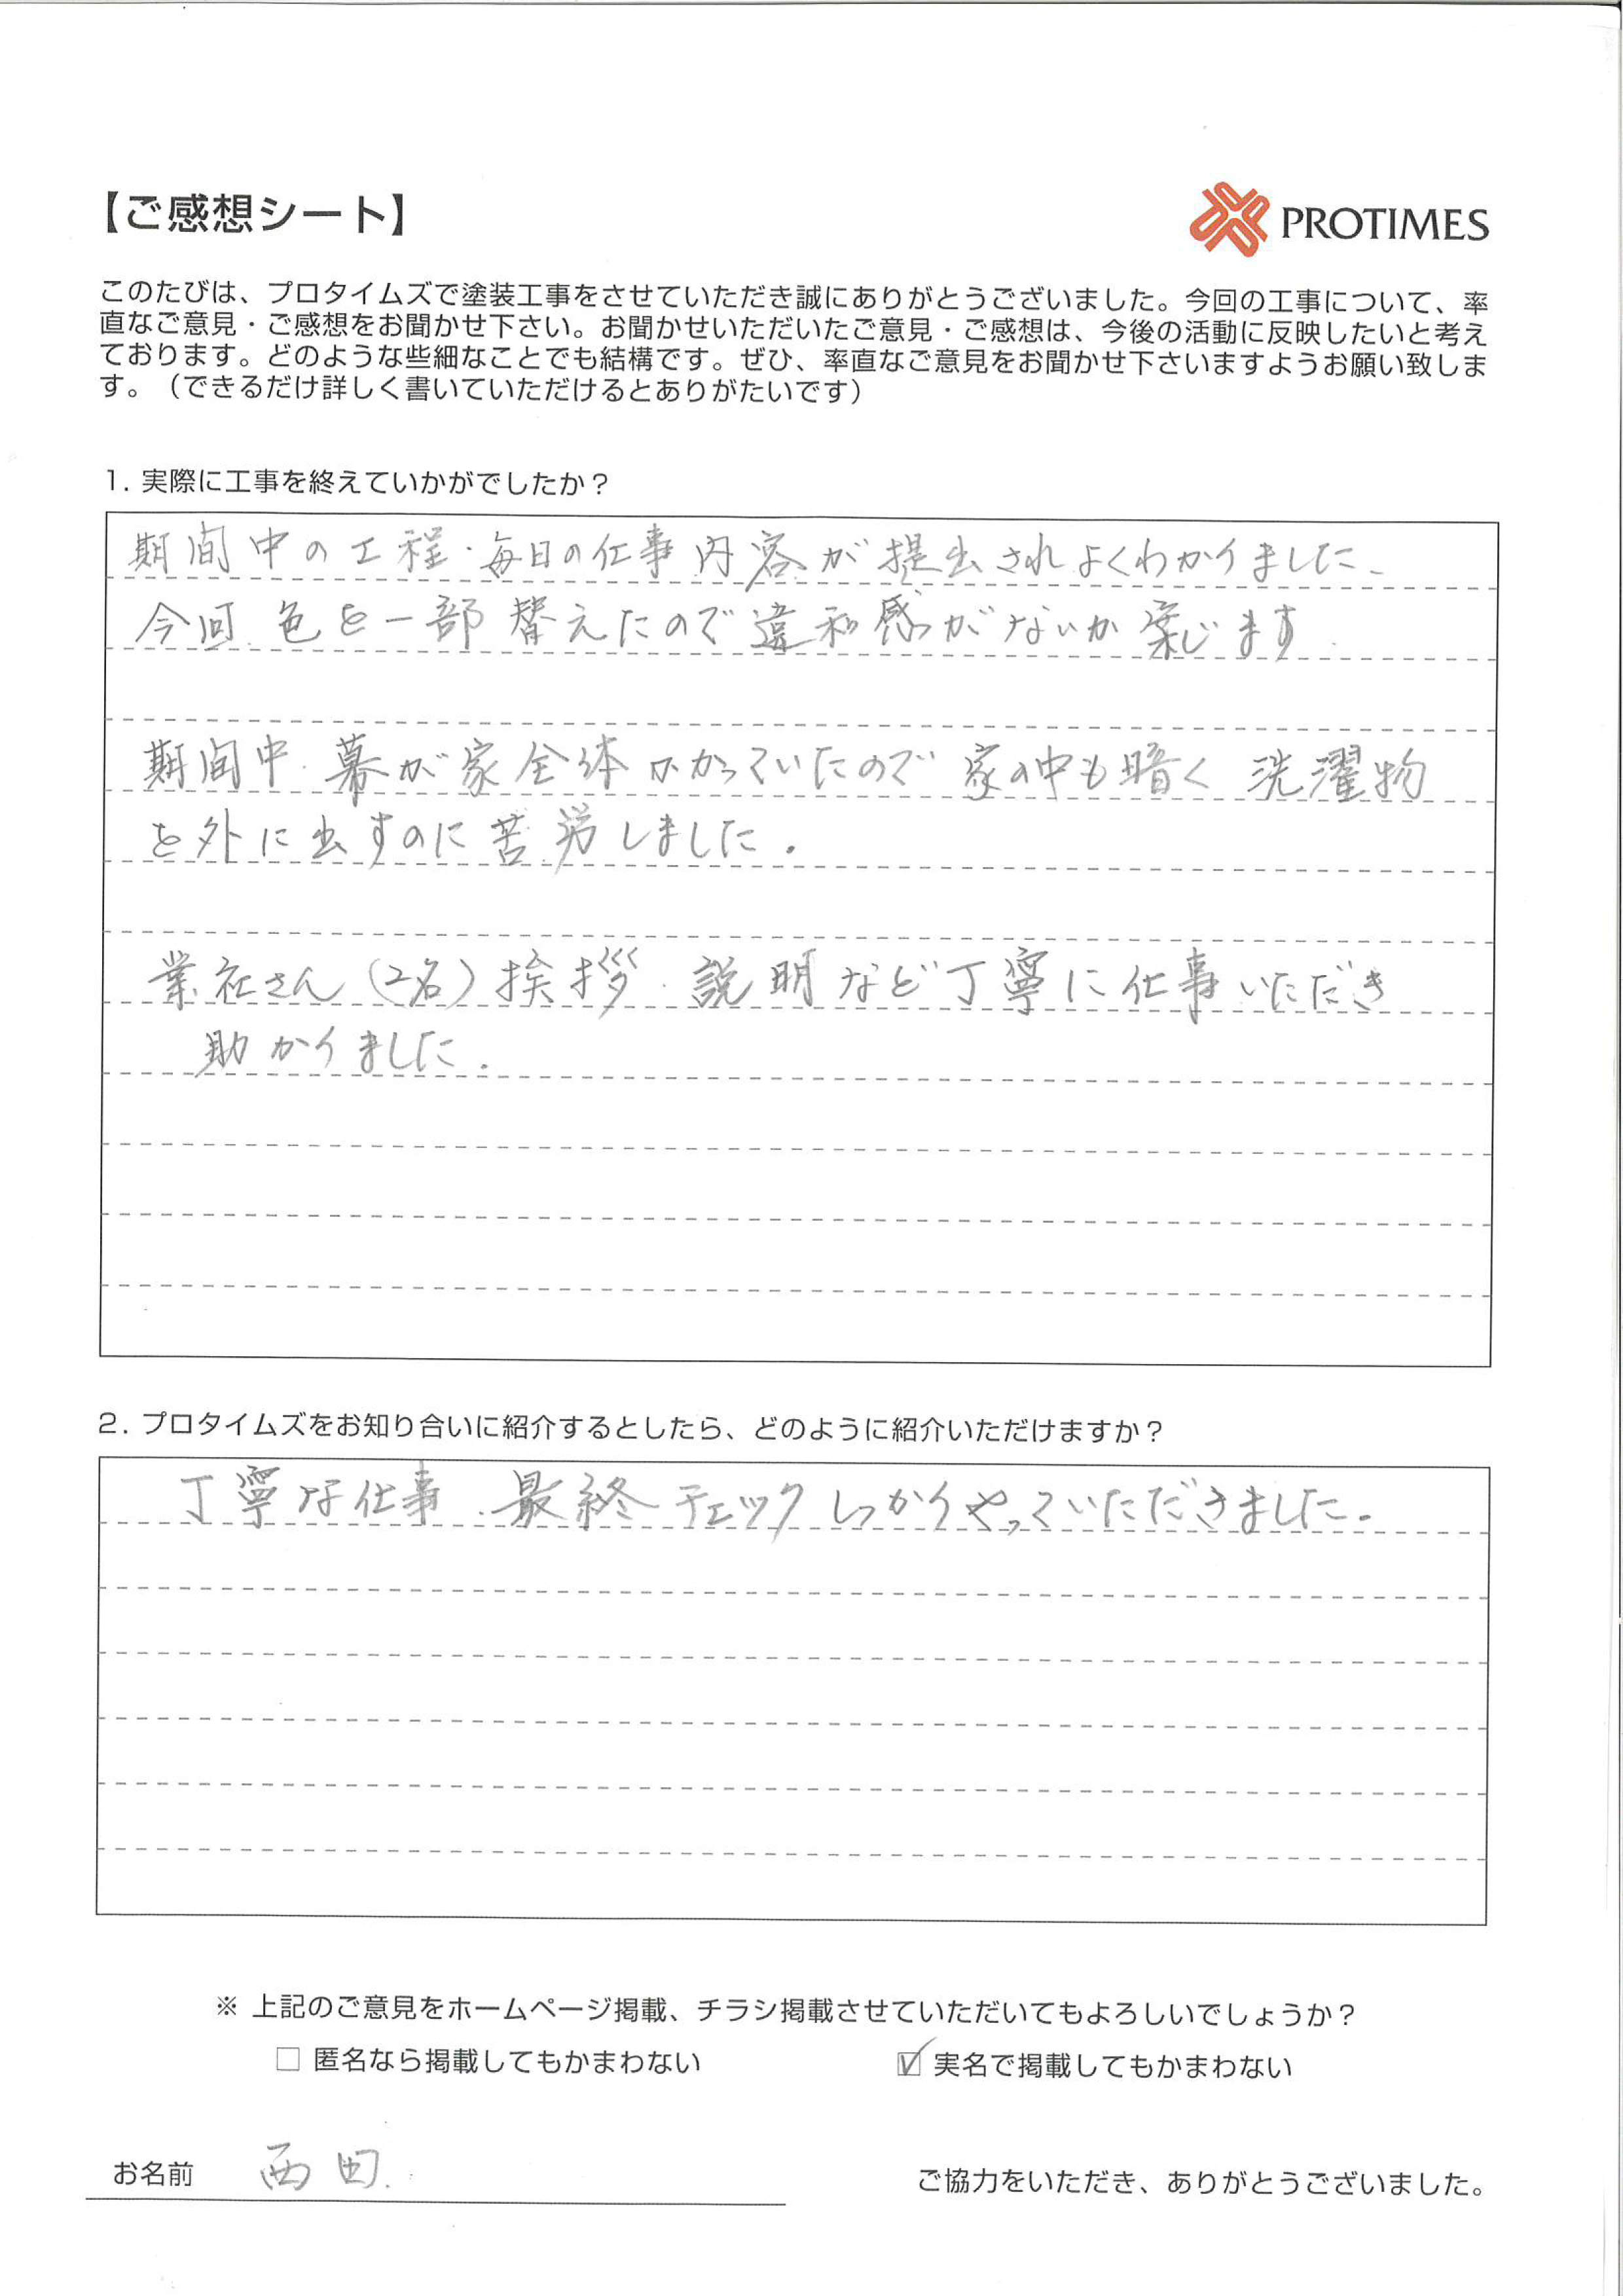 【ご感想シート】
PROTIMES
このたびは、プロタイムズで塗装工事をさせていただき誠にありがとうございました。今回の工事について、率
直なご意見・ご感想をお聞かせ下さい。お聞かせいただいたご意見・ご感想は、今後の活動に反映したいと考え
ております。どのような些細なことでも結構です。ぜひ、率直なご意見をお聞かせ下さいますようお願い致しま
す。（できるだけ詳しく書いていただけるとありがたいです）
1. 実際に工事を終えていかがでしたか？
期間中の工程・毎日の仕事内容が提出されよくわかりました、
今回 色を一部替えたので違和感がないか案じます
期間中 幕が家全体かかっていたので 家の中も暗く 洗濯物
を外に出すのに苦労しました.
業社さん（2名）挨拶．説明など丁寧に仕事いただき
助かりました.
2. プロタイムズをお知り合いに紹介するとしたら、どのように紹介いただけますか？
丁寧な仕事．最終チェックしっかりやっていただきました.
※ 上記のご意見をホームページ掲載、チラシ掲載させていただいてもよろしいでしょうか？
□ 匿名なら掲載してもかまわない ☑ 実名で掲載してもかまわない
お名前 西田. ご協力をいただき、ありがとうございました。